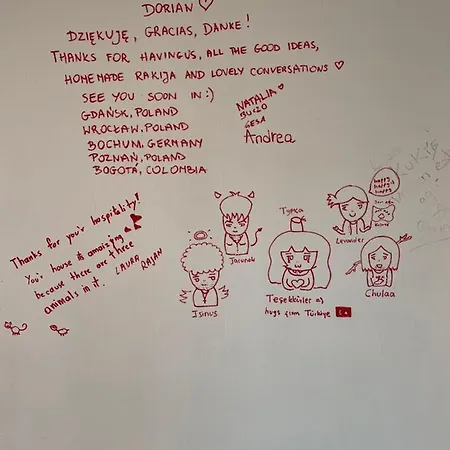 DORIAN ♡
DZIĘKUJĘ, GRACIAS, DANKE!
THANKS FOR HAVING US, ALL THE GOOD IDEAS,
HOMEMADE RAKIJA AND LOVELY CONVERSATIONS ♡
SEE YOU SOON IN :)
GDAŃSK, POLAND
WROCŁAW, POLAND
BOCHUM, GERMANY
POZNAŃ, POLAND
BOGOTÁ, COLOMBIA
NATALIA
GESA
Andrea
Thanks for your hospitality!
Your house is amaizing
because there are three
animals in it.
LAURA
happy
happy
happy
Tyrxa
Levander
Jaturok
Isinus
Chulaa
Teşekkürler
hugs from Türkiye